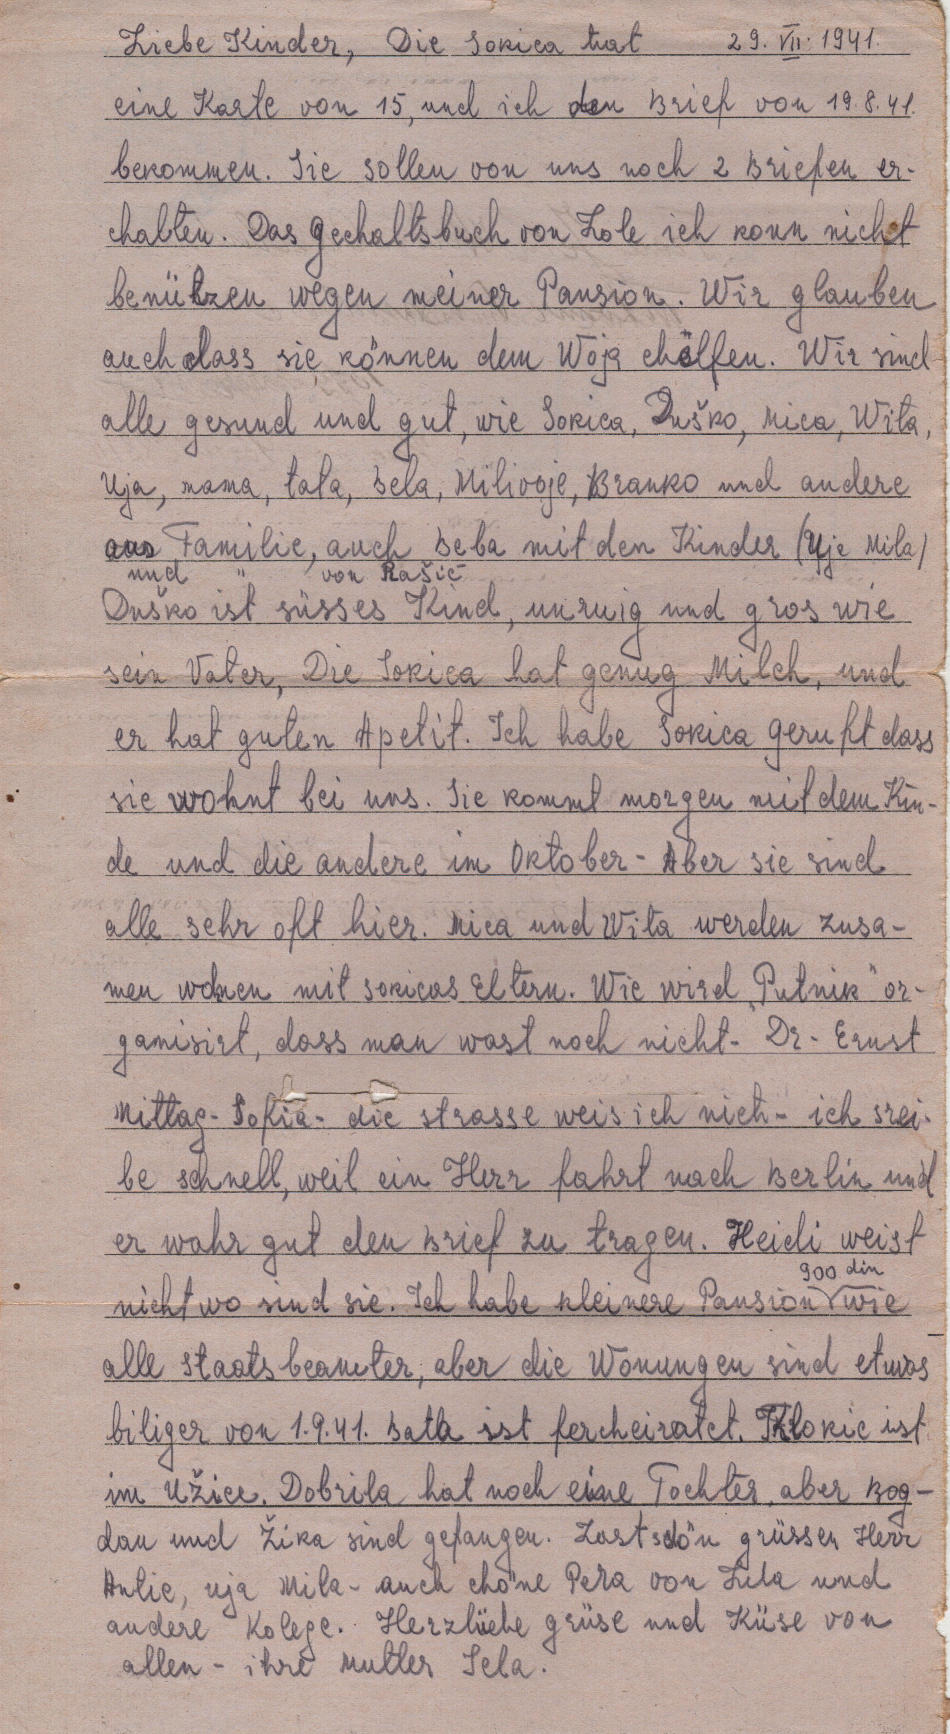 Liebe Kinder, Die Sokica hat 29. VII. 1941.
eine Karte von 15, und ich den Brief von 19.8.41.
bekommen. Sie sollen von uns noch 2 Briefen er-
chalten. Das Gechaltsbuch von Lole ich kann nicht
benützen wegen meiner Pansion. Wir glauben
auch dass sie können dem Woja chälfen. Wir sind
alle gesund und gut, wie Sokica, Duško, Mica, Wita,
Uja, mama, tata, Bela, Milivoje, Branko und andere
aus Familie, auch Beba mit den Kinder (Uje Mila)
und " von Rašić
Duško ist süsses Kind, unruig und gros wie
sein Vater, Die Sokica hat genug Milch, und
er hat guten Apetit. Ich habe Sokica geruft dass
sie wohnt bei uns. Sie kommt morgen mit dem Kin-
de und die andere im Oktober - Aber sie sind
alle sehr oft hier. Mica und Wita werden zusa-
men wohnen mit Sokicas Eltern. Wie wird „Putnik" or-
ganisirt, dass man wast noch nicht - Dr - Ernst
Mittag - Sofia - die strasse weis ich nich - ich srei-
be schnell, weil ein Herr fahrt nach Berlin und
er wahr gut den Brief zu tragen. Heidi weist
nicht wo sind sie. Ich habe kleinere Pansion 900 din wie
alle staatsbeamter, aber die Wonungen sind etwas
biliger von 1.9.41. Bata ist fercheiratet. Klokić ist
im Užice. Dobrila hat noch eine Tochter, aber Bog-
dan und Žika sind gefangen. Last schön grüssen Herr
Antić, uja Mila - auch chöne Pera von Lula und
andere Kolege. Herzliche grüse und Küse von
allen - ihre Mutter Jela.